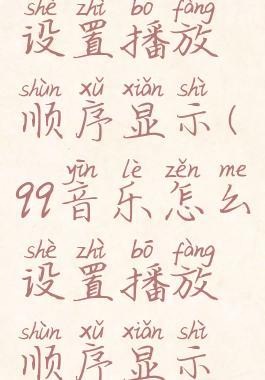 shè zhì bō fàng
设置播放
shùn xǔ xiǎn shì
顺序显示(
yīn lè zěn me
99音乐怎么
shè zhì bō fàng
设置播放
shùn xǔ xiǎn shì
顺序显示